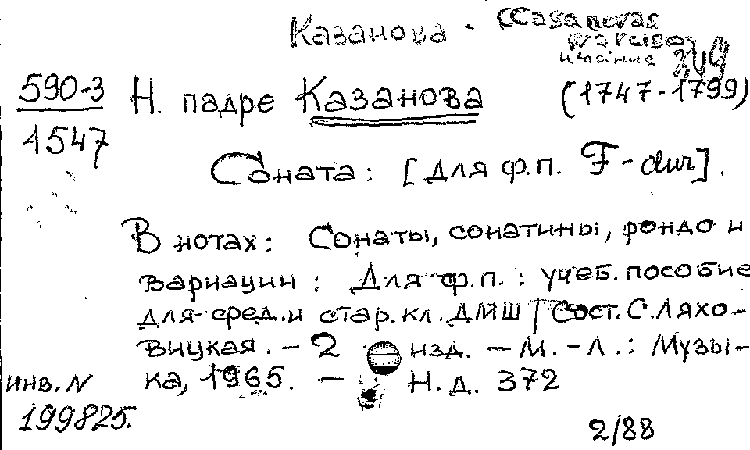 Казанова - (Casanovas
Narciso
590-3 Н. падре Казанова (1747-1799)
1547
Соната: [Для ф.п. F-dur].
В нотах: Сонаты, сонатины, рондо и
вариации: Для ф.п.: учеб. пособие
для сред. и стар. кл. ДМШ / Сост. С. Ляхо-
вицкая. - 2 изд. - М. - Л.: Музы-
инв. N ка, 1965. - Н.д. 372
199825.
2/88